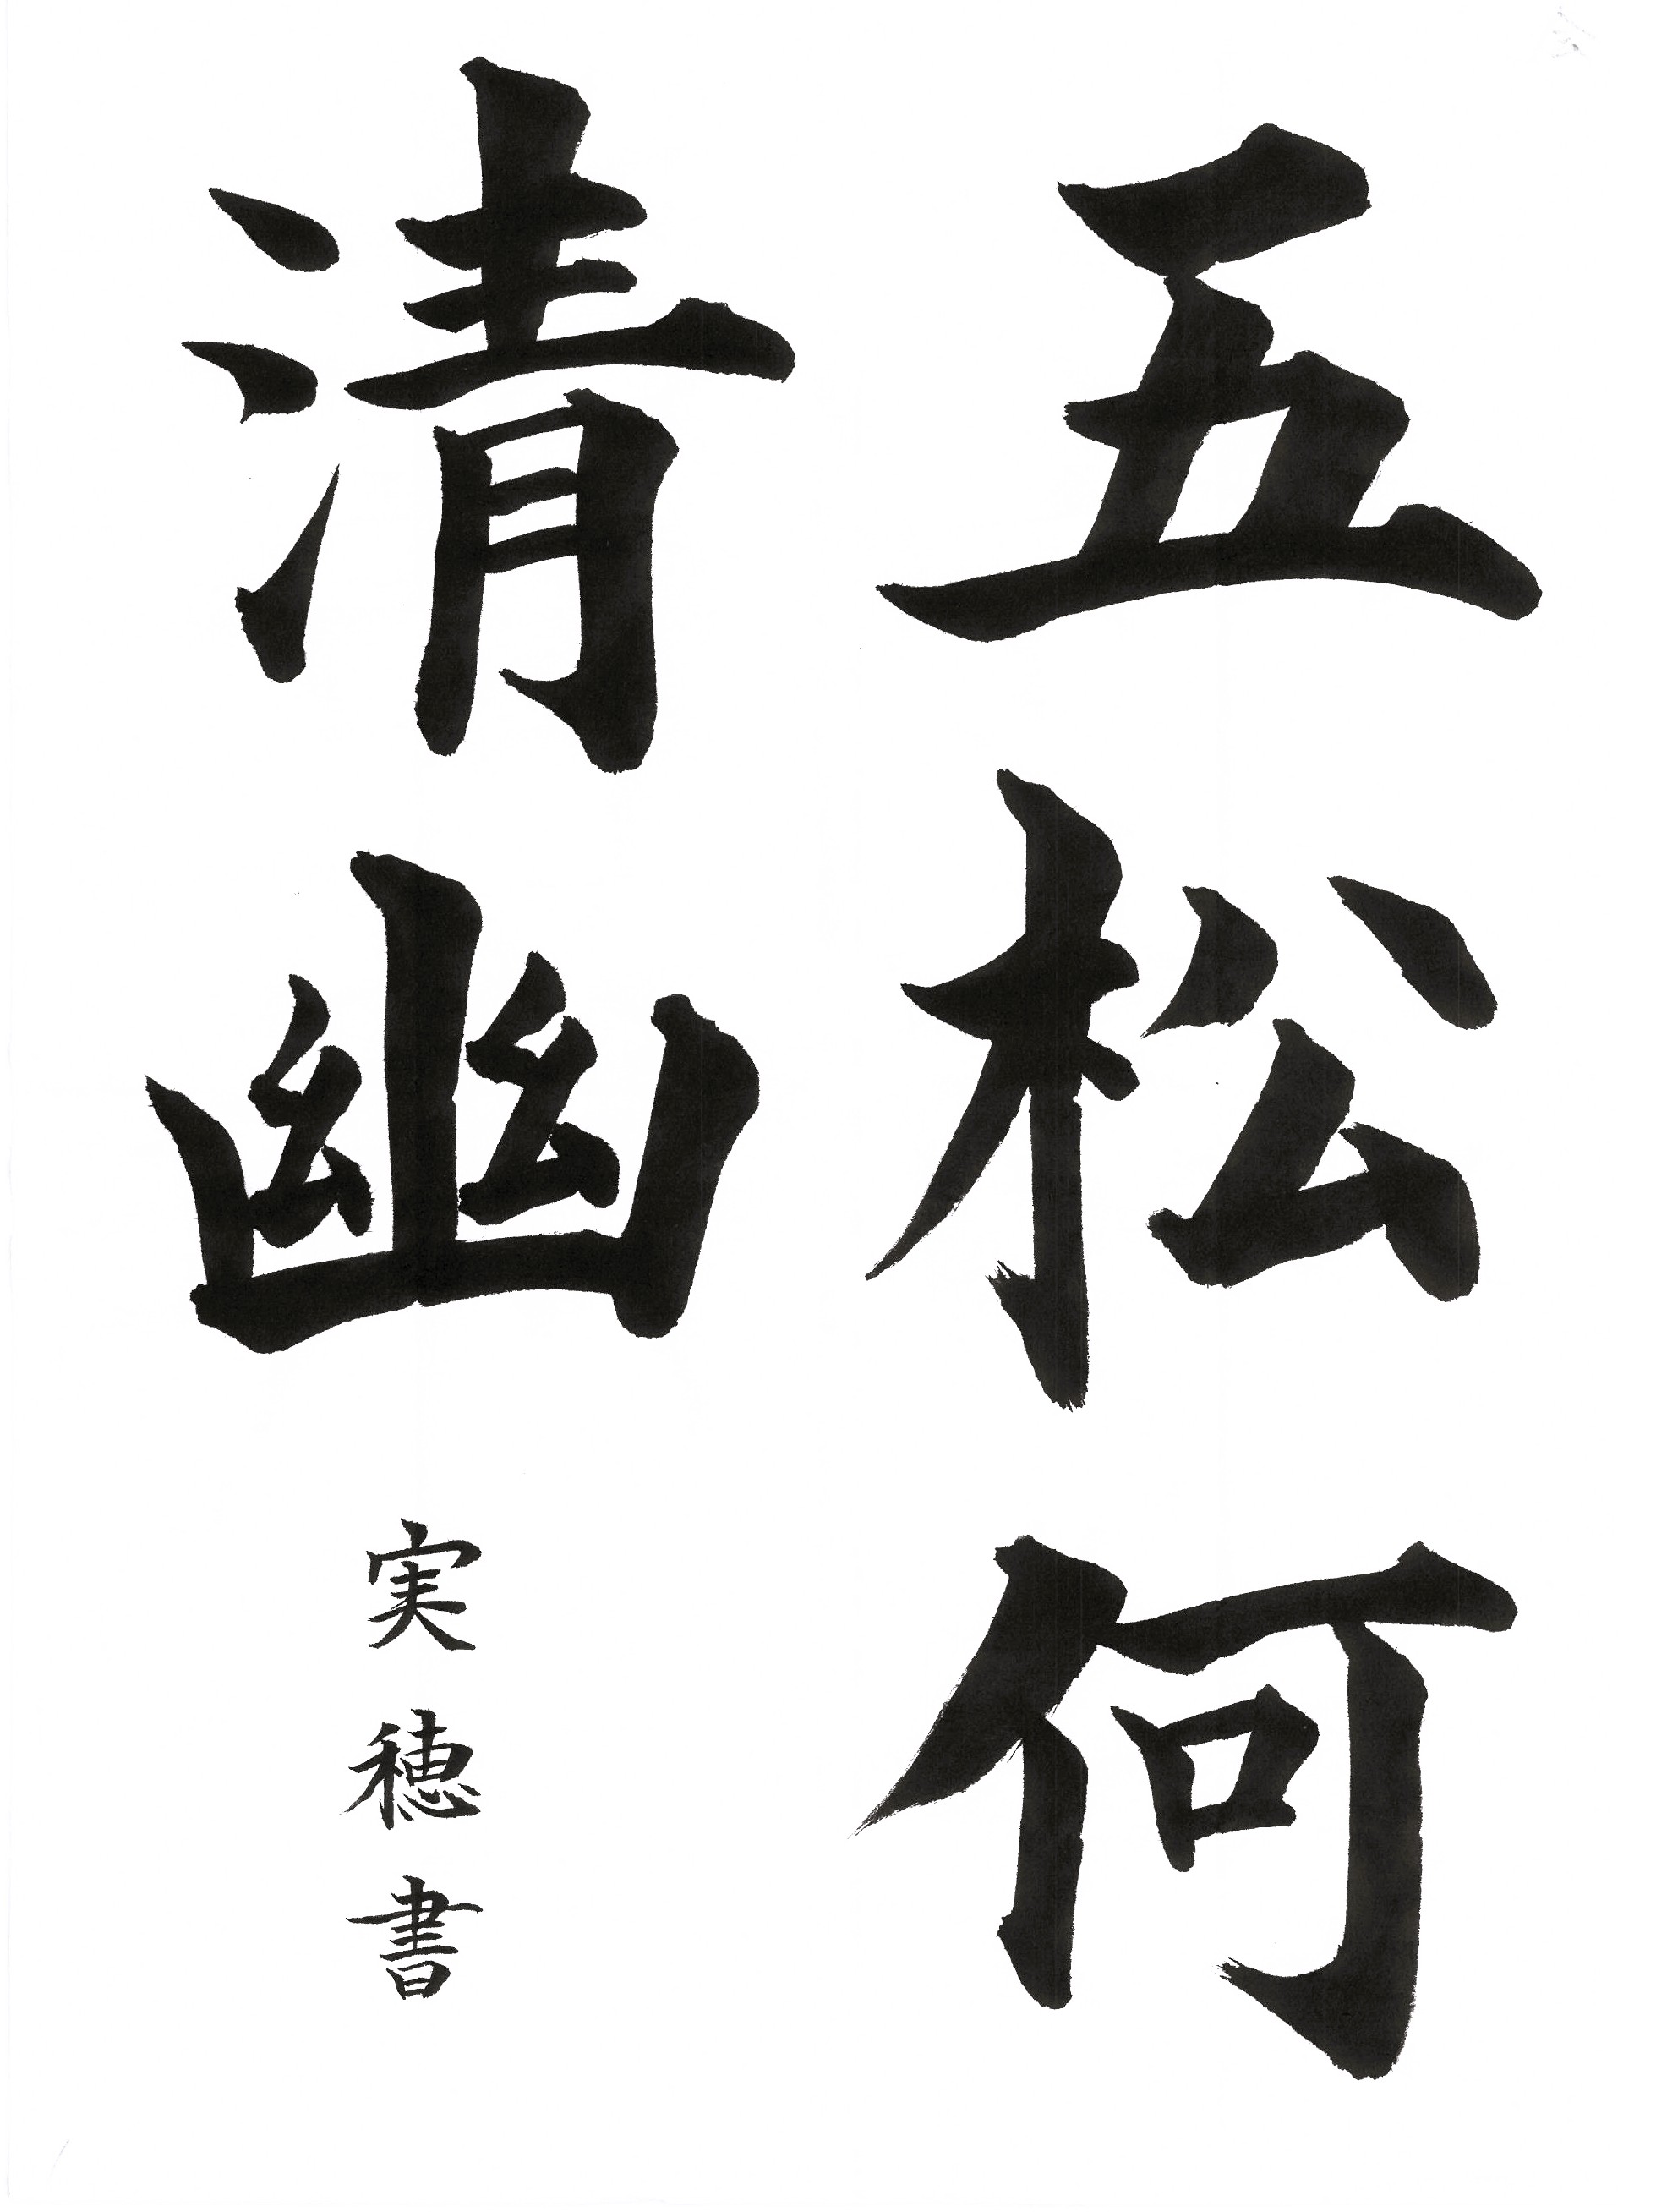 五松何
清幽
実穂書